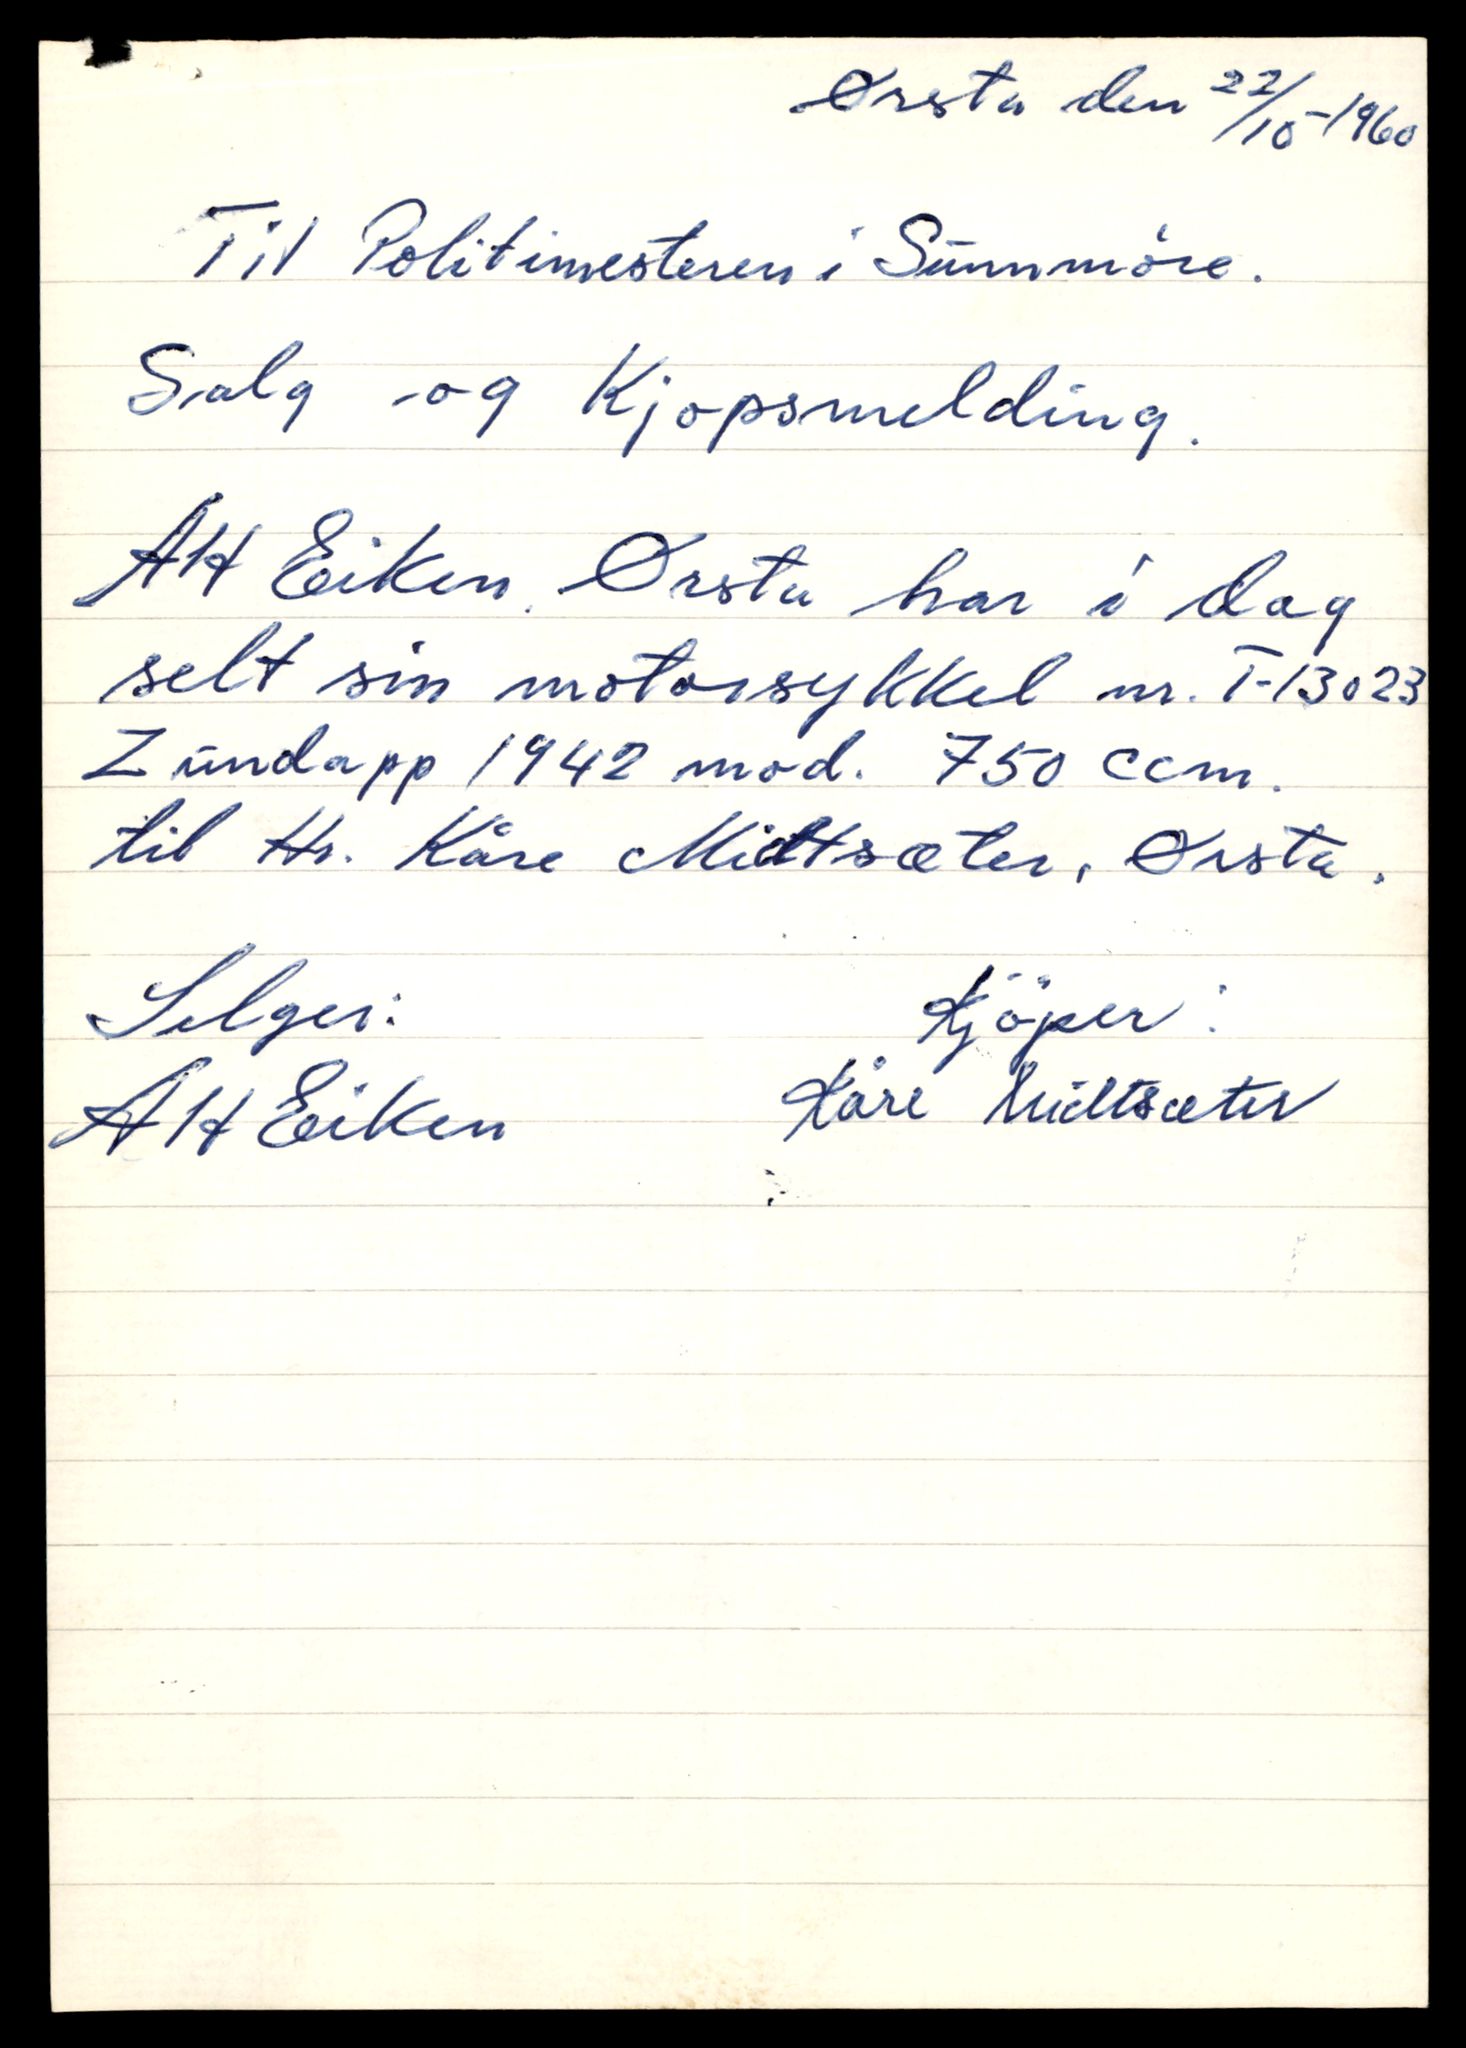 Ørsta den 22/10-1960
Til Politimesteren i Sunnmöre.
Salg -og Kjopsmelding.
AH Eiken. Ørsta har i dag
selt sin motorsykkel nr. T-13023
Zündapp 1942 mod. 750 ccm.
til Hr. Kåre Midtsæter, Ørsta.
Selger: Kjöper:
AH Eiken Kåre Midtsæter